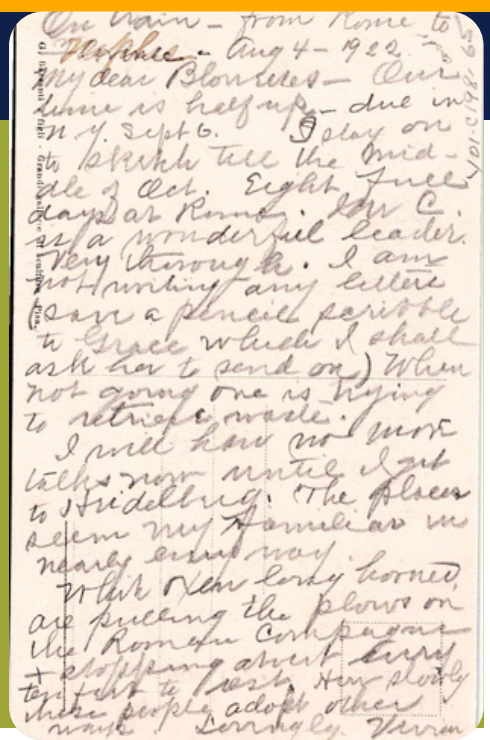 On train - from Rome to
Naples - Aug 4 - 1922.
My dear Blowseres - Our
time is half up - due in
N.Y. Sept 6. I stay on
to sketch till the mid-
dle of Oct. Eight full
days at Rome. Mr C.
is a wonderful leader.
Very thorough. I am
not writing any letters
(save a pencil scribble
to Grace which I shall
ask her to send on) When
not going one is trying
to retrieve waste.
I will have no more
talks now until I get
to Heidelberg. The places
seem very familiar in
nearly every way.
White oxen long horned,
are pulling the plows on
the Roman Campagna
+ stopping about every
ten feet to rest. How slowly
these people adopt other
ways Lovingly Vivian